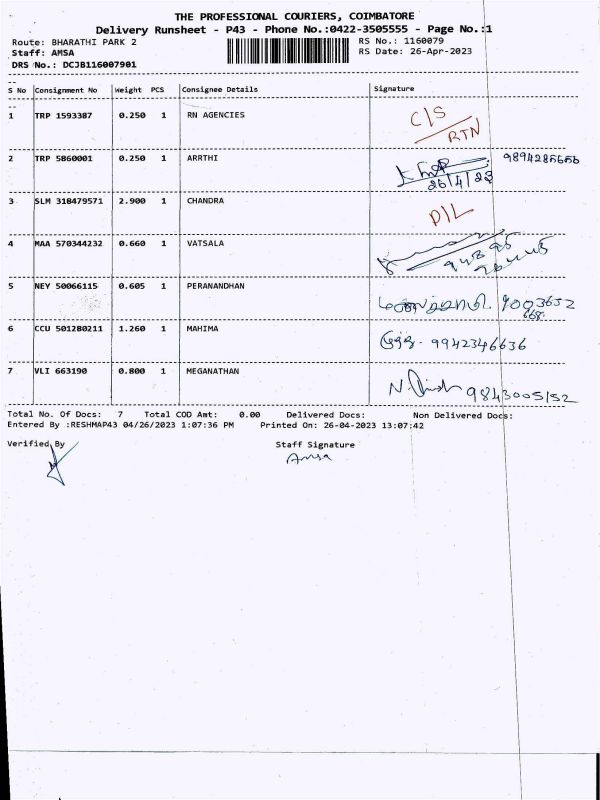 THE PROFESSIONAL COURIERS, COIMBATORE
Delivery Runsheet - P43 - Phone No.:0422-3505555 - Page No.:1
Route: BHARATHI PARK 2 RS No.: 1160079
Staff: AMSA RS Date: 26-Apr-2023
DRS No.: DCJB116007901
S No Consignment No Weight PCS Consignee Details Signature
1 TRP 1593387 0.250 1 RN AGENCIES C/S
RTN
2 TRP 5860001 0.250 1 ARRTHI 9894286656
26/4/23
3 SLM 318479571 2.900 1 CHANDRA D/L
4 MAA 570344232 0.660 1 VATSALA
5 NEY 50066115 0.605 1 PERANANDHAN 9003652
668
6 CCU 501280211 1.260 1 MAHIMA 9942346636
7 VLI 663190 0.800 1 MEGANATHAN 9843005152
Total No. Of Docs: 7 Total COD Amt: 0.00 Delivered Docs: Non Delivered Docs:
Entered By :RESHMAP43 04/26/2023 1:07:36 PM Printed On: 26-04-2023 13:07:42
Verified By Staff Signature
Amsa